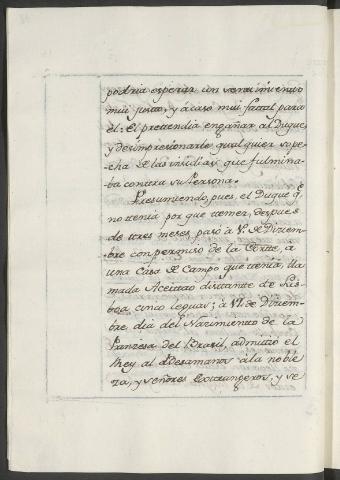 podria esperar un sentimiento
mui justo, y acaso mui fattal para
el: el prettendia engañar al Duque
y desimpresionarle qualquier sospe
cha de las insidias que fulmina-
ba contra su Persona.
Presumiendo, pues, el Duque q.e
no ttenia por que ttemer, despues
de ttres meses, pasó à V. de Diziem
bre con permiso de la Cortte, à
una Casa de Campo que ttenia, lla
mada Aceittao disttante de Lis
boa cinco leguas; à VI. de Diziem-
bre dia del Nazimiento de la
Prinzesa del Brasil, admittió el
Rey al Besamanos à la noble
za, y señores Extrangeros, y se